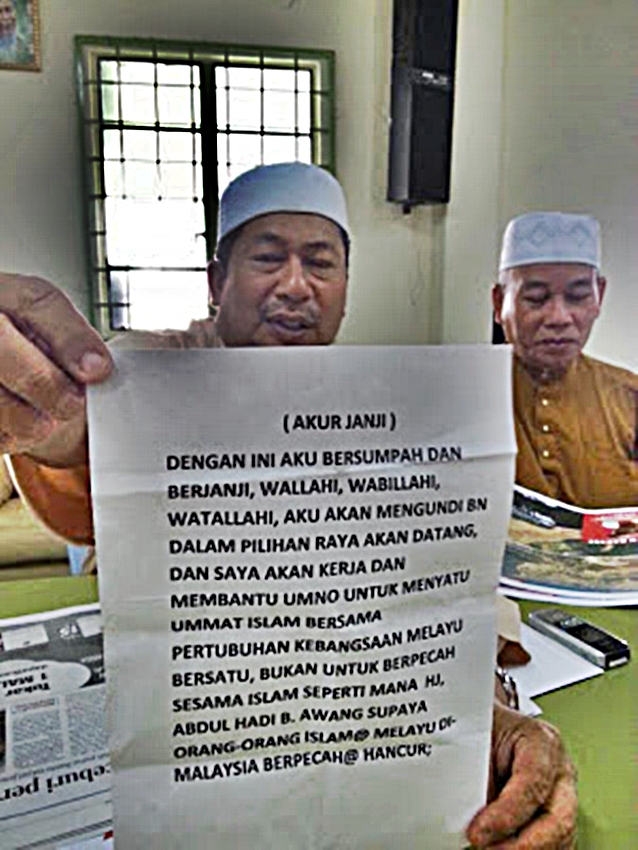 ( AKUR JANJI )
DENGAN INI AKU BERSUMPAH DAN
BERJANJI, WALLAHI, WABILLAHI,
WATALLAHI, AKU AKAN MENGUNDI BN
DALAM PILIHAN RAYA AKAN DATANG,
DAN SAYA AKAN KERJA DAN
MEMBANTU UMNO UNTUK MENYATU
UMMAT ISLAM BERSAMA
PERTUBUHAN KEBANGSAAN MELAYU
BERSATU, BUKAN UNTUK BERPECAH
SESAMA ISLAM SEPERTI MANA HJ,
ABDUL HADI B. AWANG SUPAYA
ORANG-ORANG ISLAM@ MELAYU DI-
MALAYSIA BERPECAH@ HANCUR;
Tukar
1 MAL
ceburi per